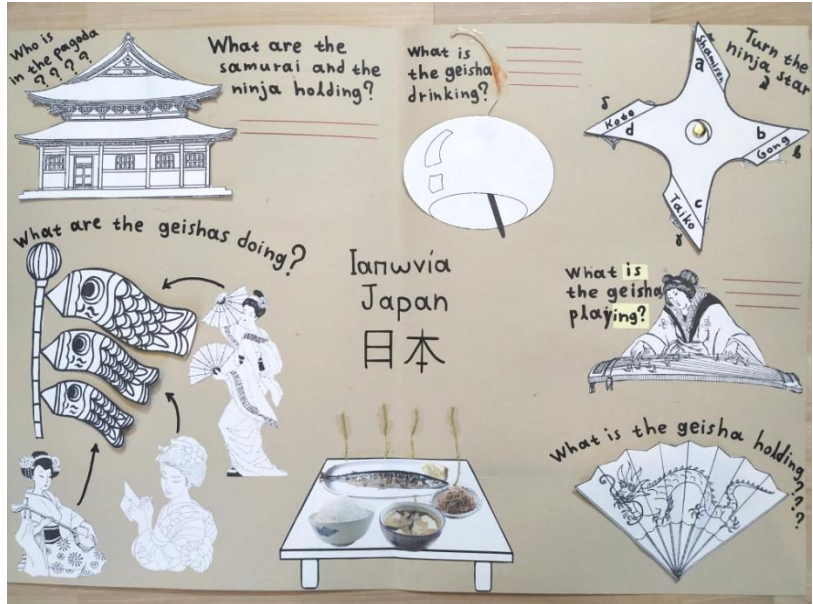 Who is
in the pagoda
????
What are the
samurai and the
ninja holding?
What is
the geisha
drinking?
Turn the
ninja star
Shamisen
a
δ
Koto
d
b
Gong
β
c
Taiko
γ
What are the geishas doing?
Ιαπωνία
Japan
日本
What is
the geisha
playing?
What is the geisha holding???